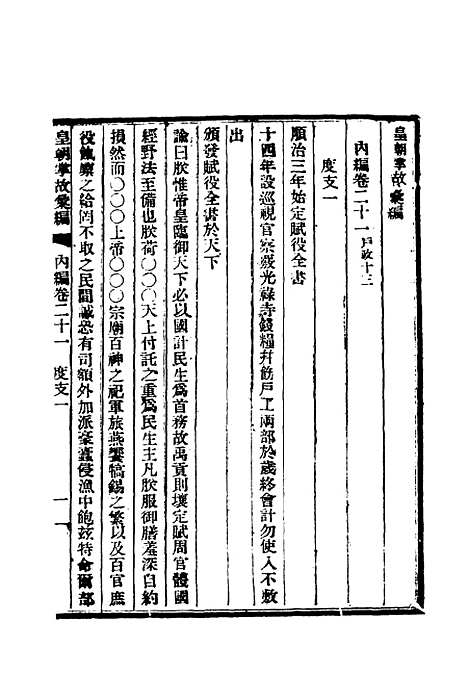 皇朝掌故彙編
內編卷二十一戶政十三
度支一
順治三年始定賦役全書
十四年設巡視官察覈光祿寺錢糧幷飭戶工兩部於歲終會計勿使入不敷
出
頒發賦役全書於天下
諭曰朕惟帝皇臨御天下必以國計民生爲首務故禹貢則壤定賦周官體國
經野法至備也朕荷〇〇〇天上付託之重爲民生主凡朕服御膳羞深自約
損然而〇〇〇上帝〇〇〇宗廟百神之祀軍旅燕饗犒錫之繁以及百官庶
役餼廩之給罔不取之民間誠恐有司額外加派豪蠹侵漁中飽茲特命爾部
皇朝掌故彙編 內編卷二十一 度支一 一